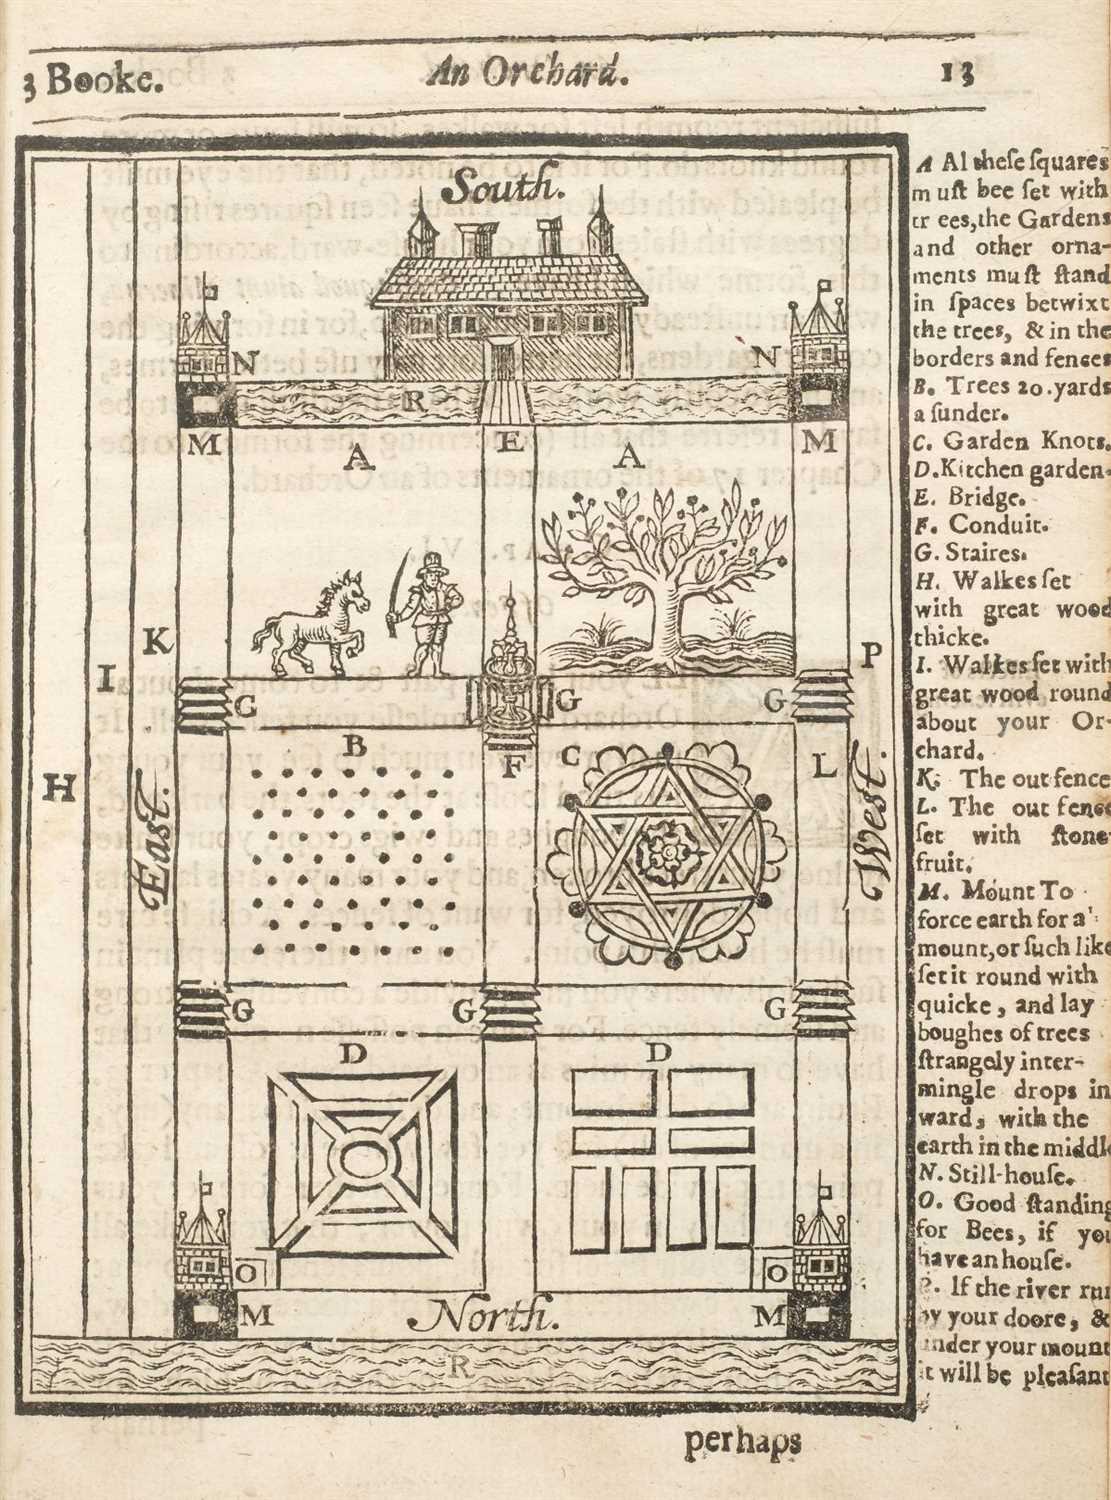 3 Booke. An Orchard. 13
South.
N N
R
M A E A M
K P
I G G G
B F C L
H
East. West.
G G G
D D
O O
M North. M
R
A Al these squares
must bee set with
trees, the Gardens
and other orna-
ments must stand
in spaces betwixt
the trees, & in the
borders and fences
B. Trees 20. yards
a sunder.
C. Garden Knots.
D. Kitchen garden.
E. Bridge.
F. Conduit.
G. Staires.
H. Walkes set
with great wood
thicke.
I. Walkes set with
great wood round
about your Or-
chard.
K. The out fence
L. The out fence
set with stone
fruit.
M. Mount To
force earth for a
mount, or such like
set it round with
quicke, and lay
boughes of trees
strangely inter-
mingle drops in
ward, with the
earth in the middle
N. Still-house.
O. Good standing
for Bees, if you
have an house.
P. If the river run
by your doore, &
under your mount
it will be pleasant
perhaps